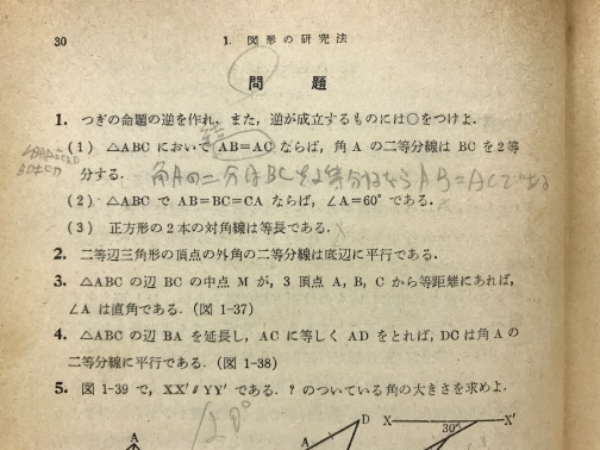 30
1. 図形の研究法
問 題
1. つぎの命題の逆を作れ．また，逆が成立するものには○をつけよ．
(1) △ABC において AB=AC ならば，角 A の二等分線は BC を2等
分する．角Aの二分はBCを2等分するならAB=ACである
(2) △ABC で AB=BC=CA ならば，∠A=60° である．
(3) 正方形の2本の対角線は等長である．
2. 二等辺三角形の頂点の外角の二等分線は底辺に平行である．
3. △ABC の辺 BC の中点 M が，3 頂点 A, B, C から等距離にあれば，
∠A は直角である．(図 1-37)
4. △ABC の辺 BA を延長し，AC に等しく AD をとれば，DC は角 A の
二等分線に平行である．(図 1-38)
5. 図 1-39 で，XX′∥YY′ である．? のついている角の大きさを求めよ．
A
A
D
X
X′
30°